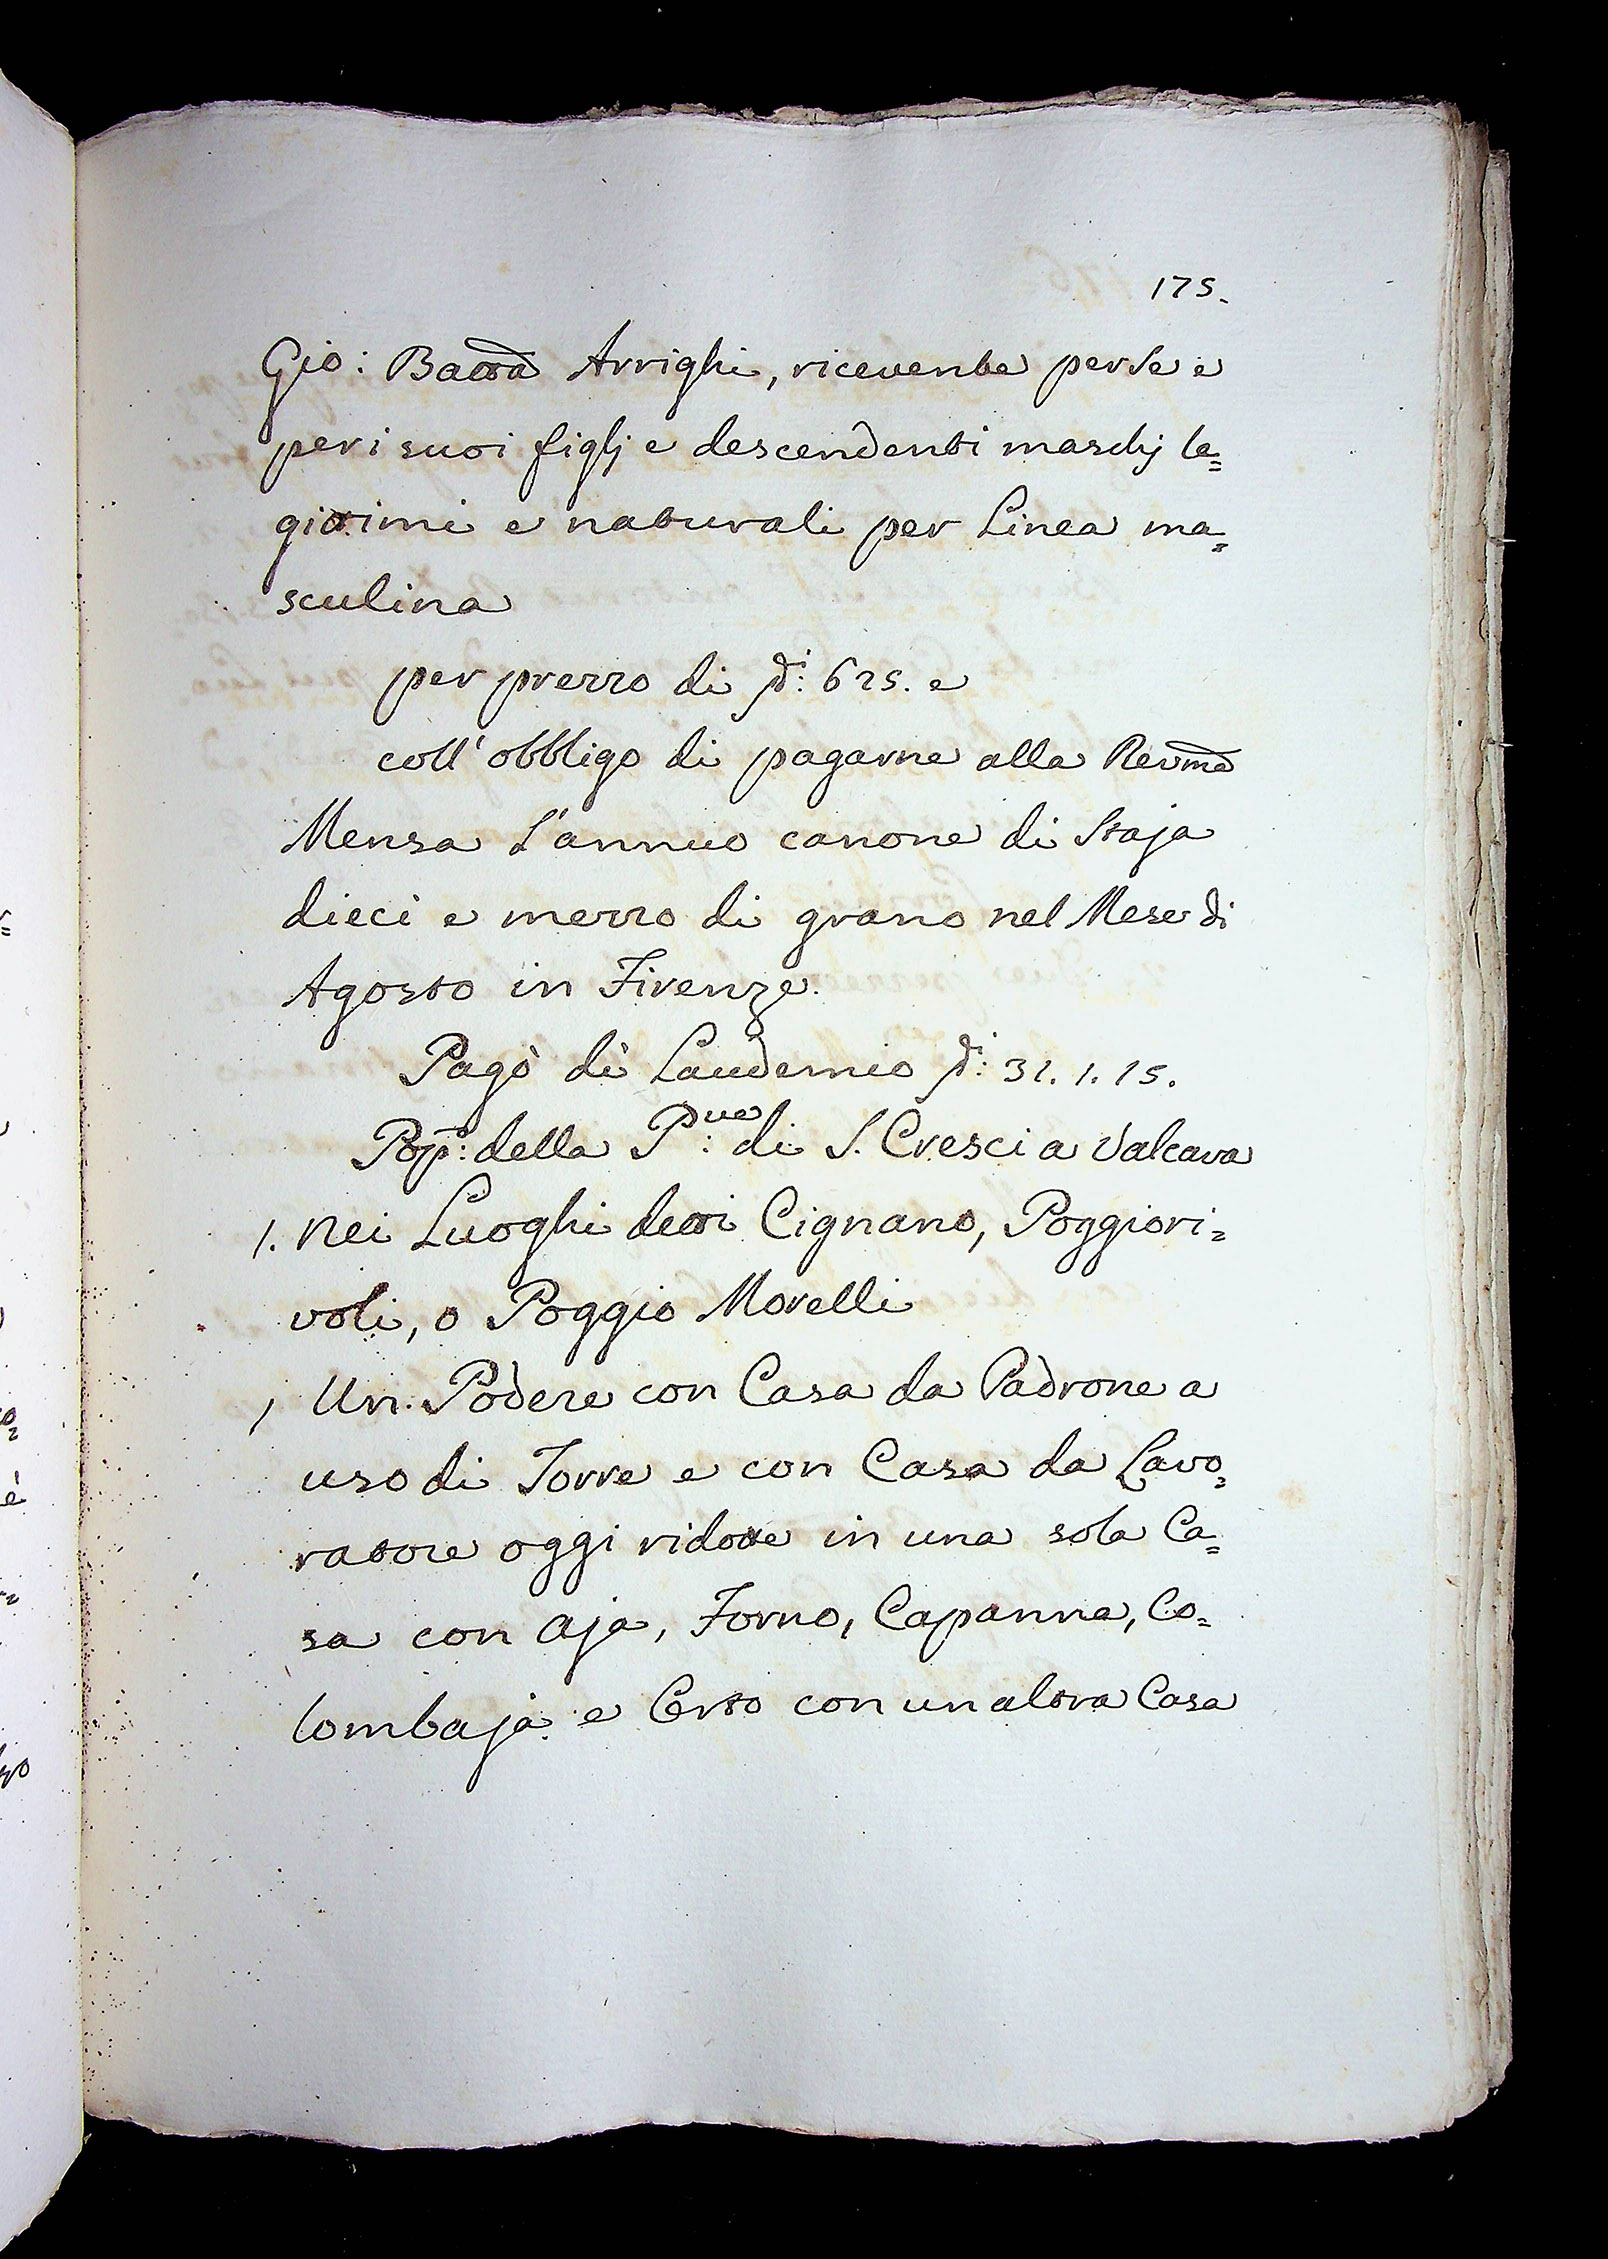 175.
Gio: Batta Arrighi, ricevente per se e
per i suoi figlj e descendenti maschj le=
gittimi e naturali per Linea ma=
sculina
per prezzo di 625. e
coll'obbligo di pagarne alla Revma
Mensa l'annuo canone di Staja
dieci e mezzo di grano nel Mese di
Agosto in Firenze.
Pagò di Laudemio 31. 1. 15.
Pop: della P:ve di S. Cresci a Valcava
1. Nei Luoghi detti Cignano, Poggiori=
voli, o Poggio Morelli
1 Un Podere con Casa da Padrone a
uso di Torre e con Casa da Lavo=
ratore oggi ridotte in una sola Ca=
sa con Aja, Forno, Capanna, Co=
lombaja e Orto con un altra Casa